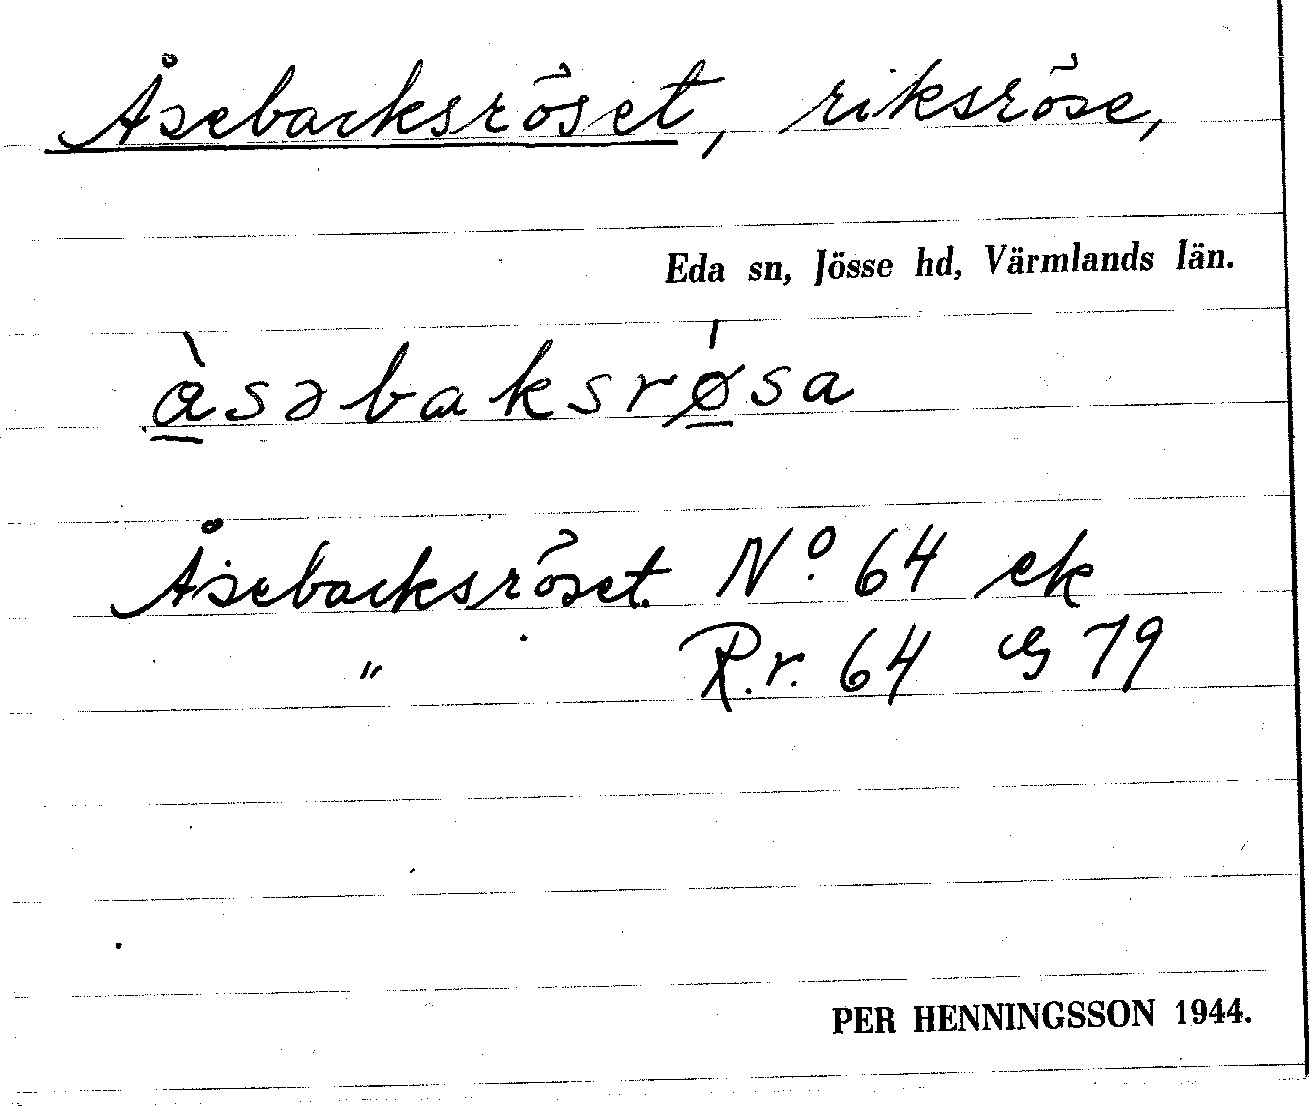 Åsebacksröset, riksröse,
Eda sn, Jösse hd, Värmlands län.
àsəbaksrø̍sa
Åsebacksröset. Nº. 64 ek
" R.r. 64 G 79
PER HENNINGSSON 1944.